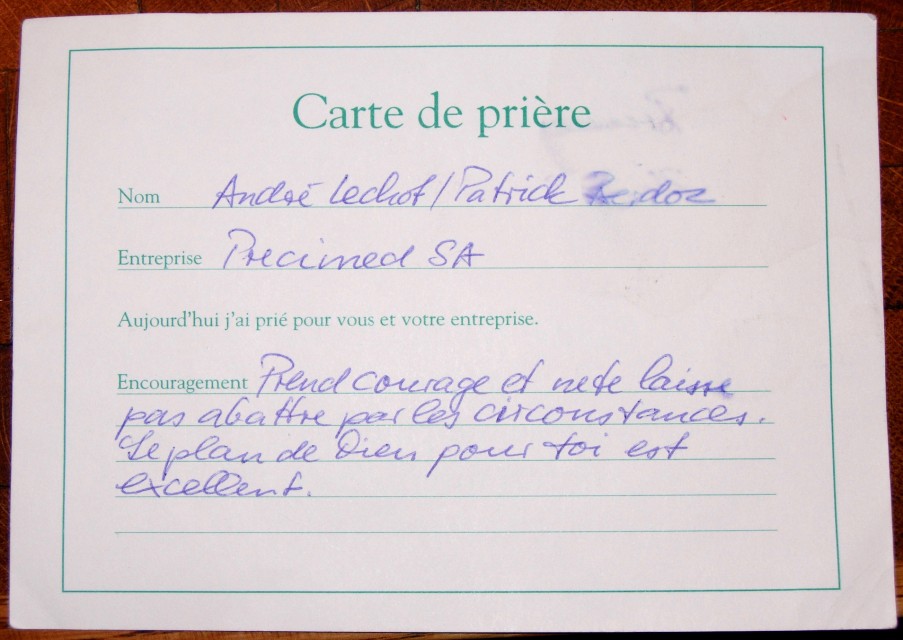 Carte de prière
Nom André Lechot / Patrick
Entreprise Precimed SA
Aujourd'hui j'ai prié pour vous et votre entreprise.
Encouragement Prend courage et ne te laisse
pas abattre par les circonstances.
Le plan de Dieu pour toi est
excellent.